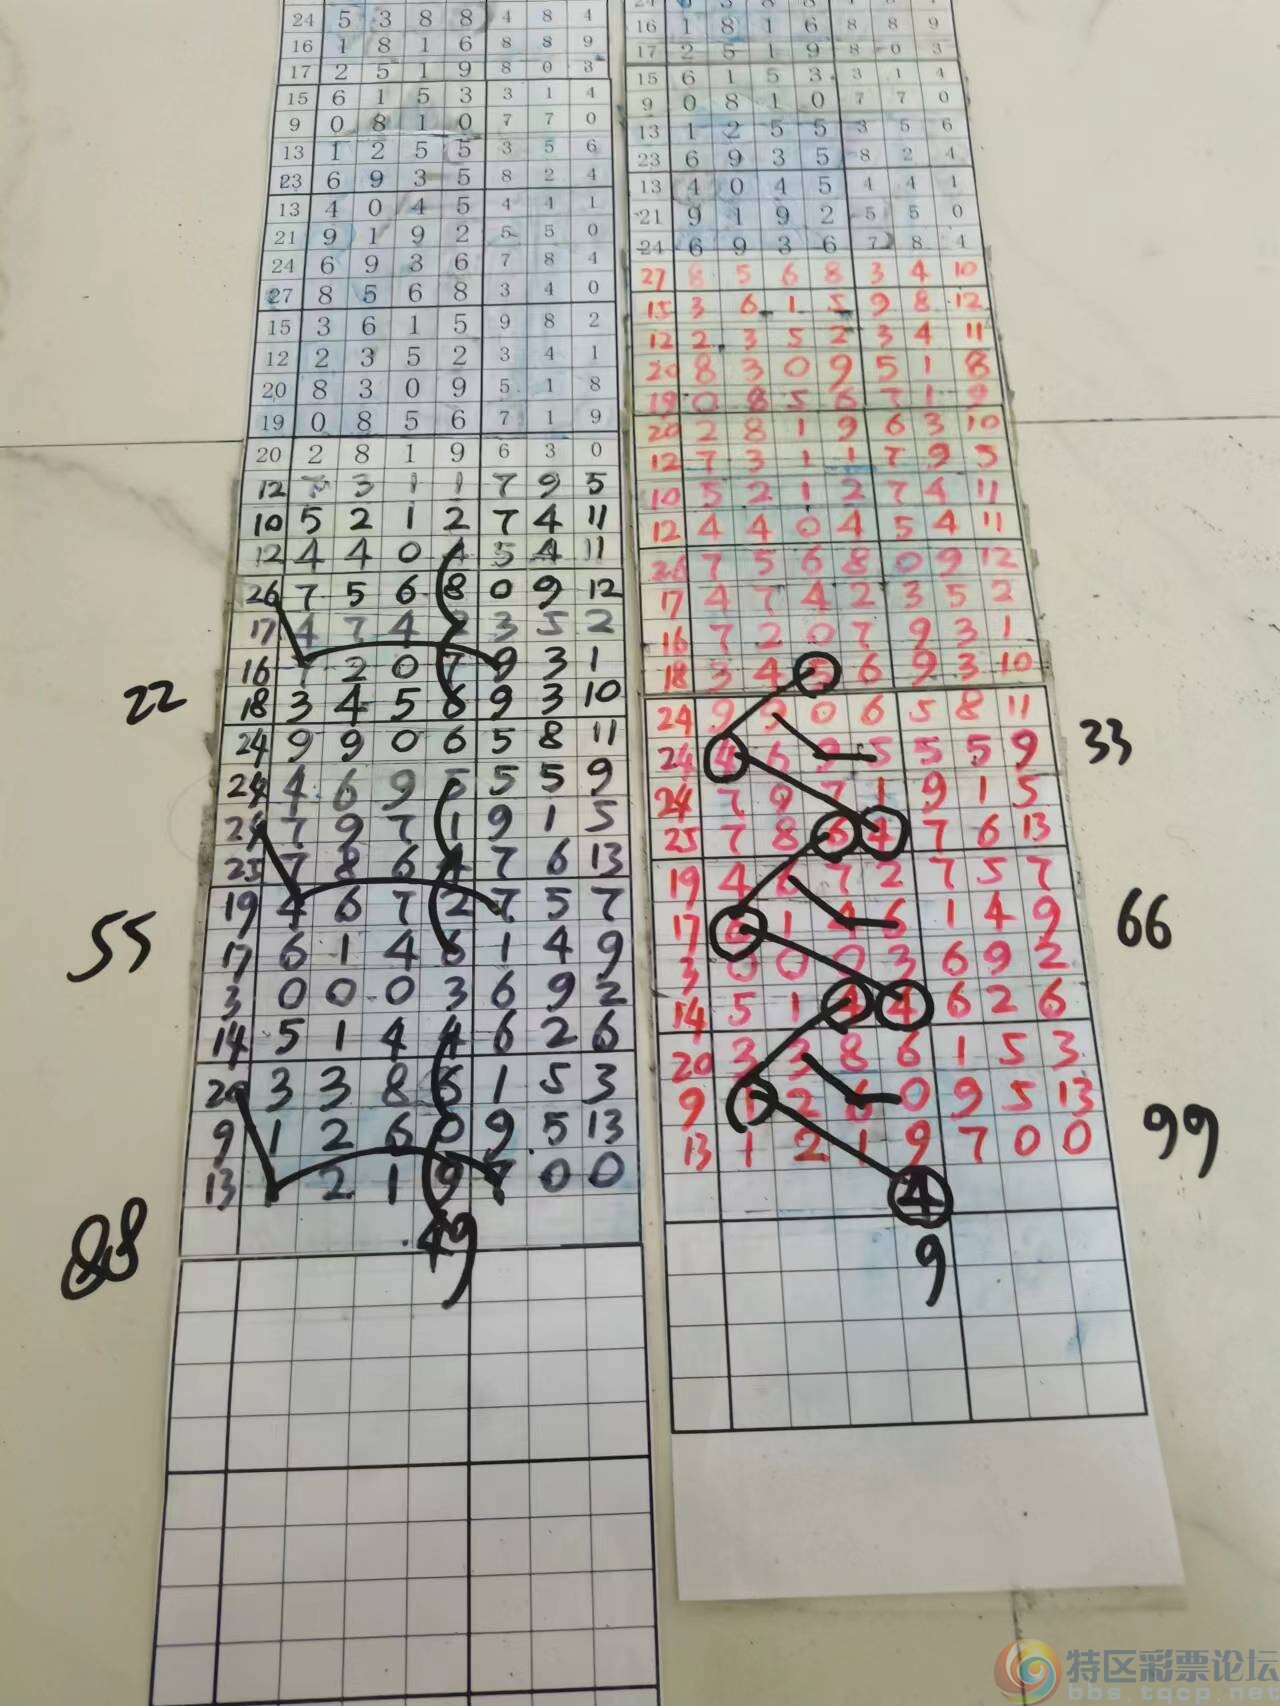 24 5 3 8 8 4 8 4
16 1 8 1 6 8 8 9
17 2 5 1 9 8 0 3
15 6 1 5 3 3 1 4
9 0 8 1 0 7 7 0
13 1 2 5 5 3 5 6
23 6 9 3 5 8 2 4
13 4 0 4 5 4 4 1
21 9 1 9 2 5 5 0
24 6 9 3 6 7 8 4
27 8 5 6 8 3 4 0
15 3 6 1 5 9 8 2
12 2 3 5 2 3 4 1
20 8 3 0 9 5 1 8
19 0 8 5 6 7 1 9
20 2 8 1 9 6 3 0
12 7 3 1 1 7 9 5
10 5 2 1 2 7 4 11
12 4 4 0 4 5 4 11
26 7 5 6 8 0 9 12
17 4 7 4 2 3 5 2
16 7 2 0 7 9 3 1
22
18 3 4 5 6 9 3 10
24 9 9 0 6 5 8 11
24 4 6 9 5 5 5 9
24 7 9 7 1 9 1 5
25 7 8 6 4 7 6 13
19 4 6 7 2 7 5 7
55
17 6 1 4 6 1 4 9
3 0 0 0 3 6 9 2
14 5 1 4 4 6 2 6
20 3 3 8 6 1 5 3
9 1 2 6 0 9 5 13
13 1 2 1 9 7 0 0
88
49
16 1 8 1 6 8 8 9
17 2 5 1 9 8 0 3
15 6 1 5 3 3 1 4
9 0 8 1 0 7 7 0
13 1 2 5 5 3 5 6
23 6 9 3 5 8 2 4
13 4 0 4 5 4 4 1
21 9 1 9 2 5 5 0
24 6 9 3 6 7 8 4
27 8 5 6 8 3 4 10
15 3 6 1 5 9 8 12
12 2 3 5 2 3 4 11
20 8 3 0 9 5 1 8
19 0 8 5 6 7 1 9
20 2 8 1 9 6 3 10
12 7 3 1 1 7 9 5
10 5 2 1 2 7 4 11
12 4 4 0 4 5 4 11
26 7 5 6 8 0 9 12
17 4 7 4 2 3 5 2
16 7 2 0 7 9 3 1
18 3 4 5 6 9 3 10
24 9 9 0 6 5 8 11
33
24 4 6 9 5 5 5 9
24 7 9 7 1 9 1 5
25 7 8 6 4 7 6 13
19 4 6 7 2 7 5 7
66
17 6 1 4 6 1 4 9
3 0 0 0 3 6 9 2
14 5 1 4 4 6 2 6
20 3 3 8 6 1 5 3
9 1 2 6 0 9 5 13
99
13 1 2 1 9 7 0 0
4
9
特区彩票论坛
bbs.tqcp.net